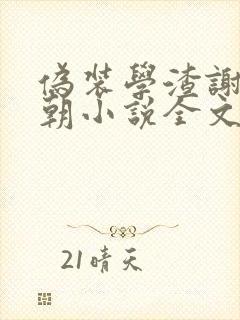 偽裝學渣謝
朝小說全文
21晴天